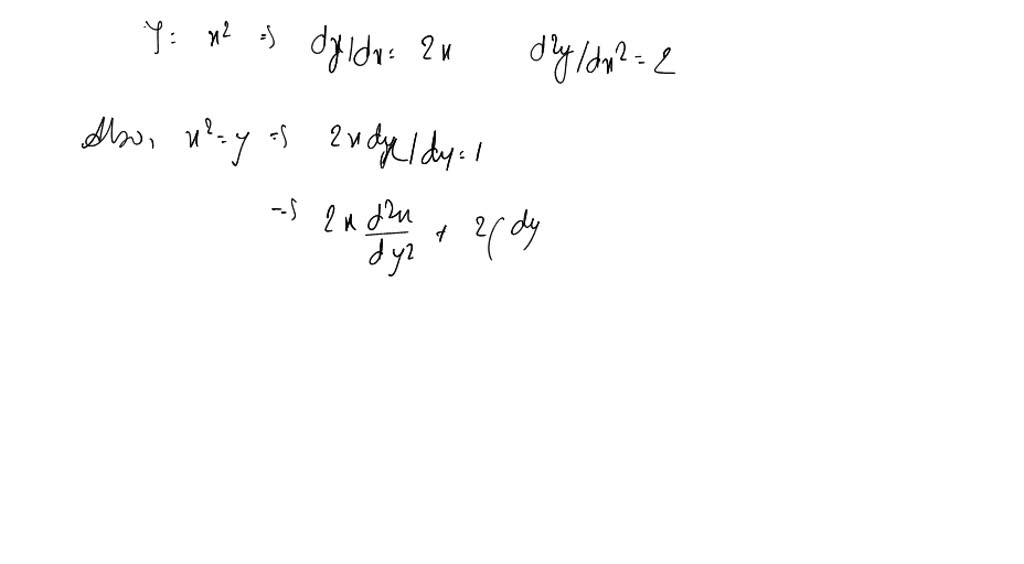 y = x² ⇒ dy/dx = 2x d²y/dx² = 2
Also, x² = y ⇒ 2x dx/dy = 1
⇒ 2x d²x/dy² + 2( dy